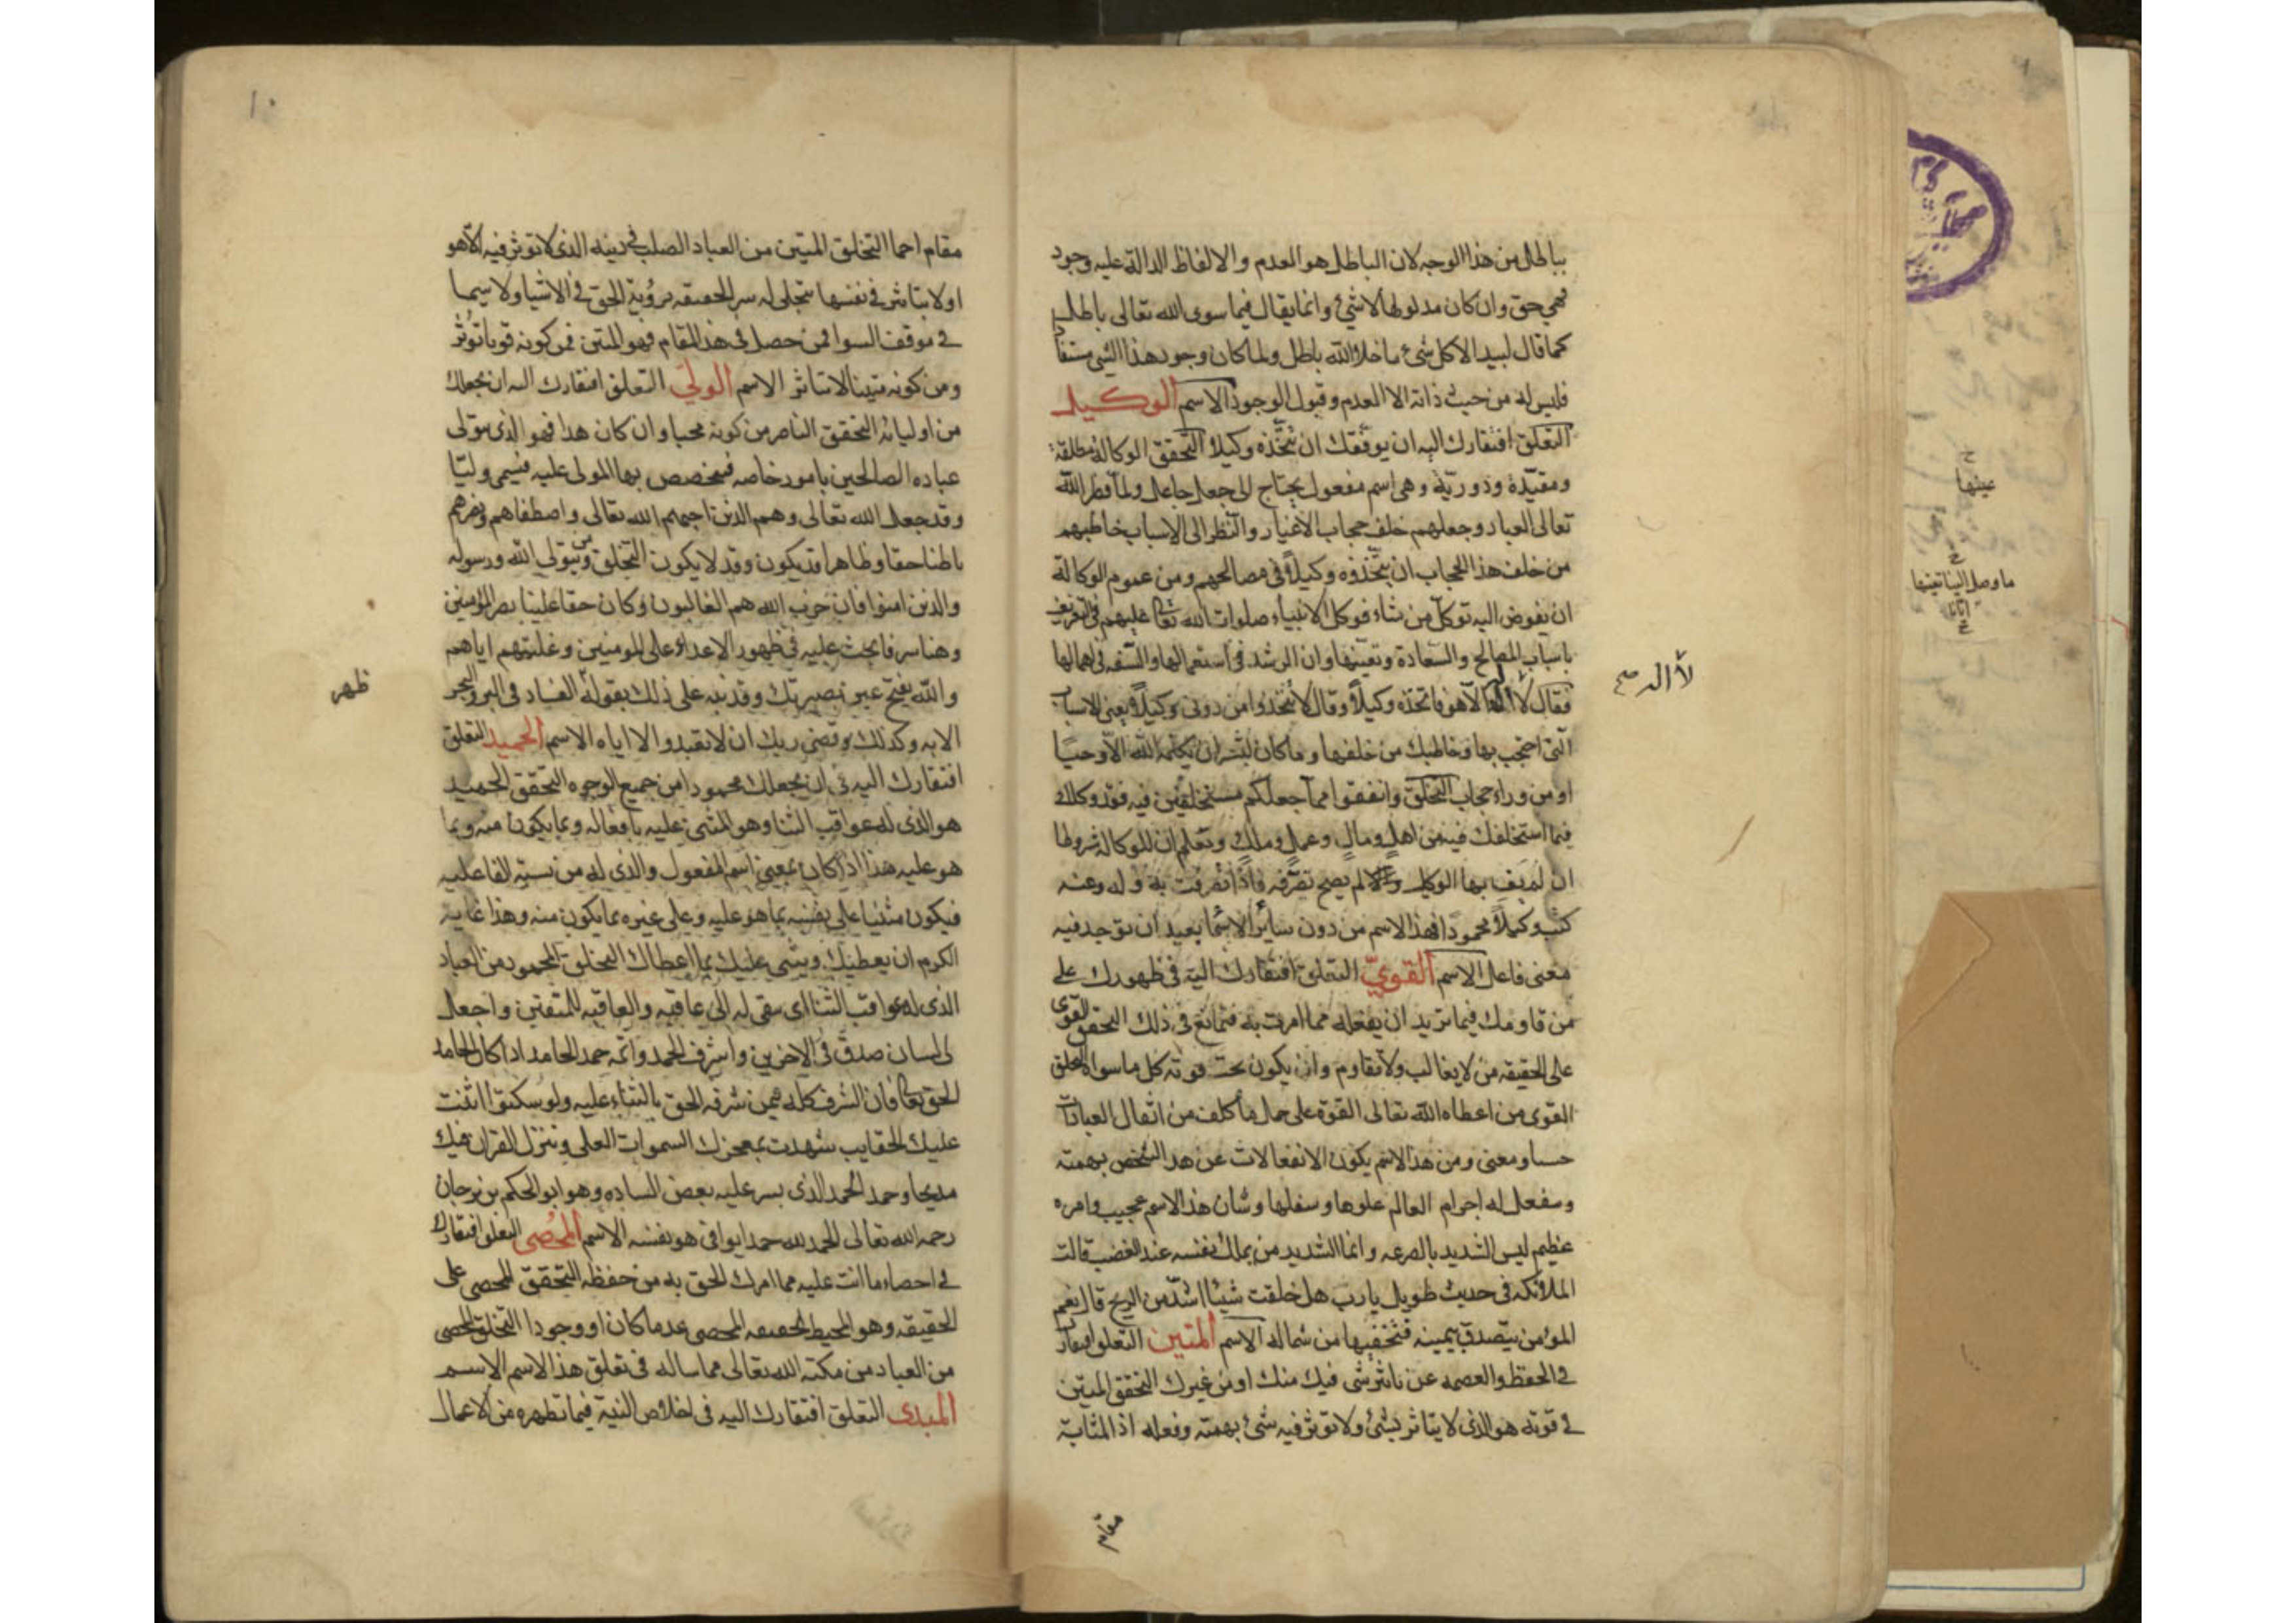 بباطل من هذا الوجه لان الباطل هو العدم والالفاظ الدالة عليه وجود
فهي حق وان كان مدلولها لاشئ وانما يقال فيما سوى الله تعالى باطل
كما قال لبيد الاكل شئ ماخلا الله باطل ولما كان وجود هذا الشي مستفادا
فليس له من حيث ذاته الا العدم وقبول الوجود الاسم الوكيل
التعلق افتقارك اليه ان يوفقك ان تتخذه وكيلا التحقق الوكالة مطلقة
ومقيدة ودورية وهى اسم مفعول يحتاج الى جعل جاعل ولما فطر الله
تعالى العباد وجعلهم خلف حجاب الاغيار والنظر الى الاسباب خاطبهم
من خلف هذا الحجاب ان يتخذوه وكيلا فى مصالحهم ومن عموم الوكالة
ان يفوض اليه توكل من شاء فوكل الانبياء صلوات الله تعا عليهم فى التعريف
باسباب المصالح والسعادة وتعينها وان الرشد فى استعمالها والسفه فى اهمالها
فقال لا اله الا هو فاتخذه وكيلا وقال لا تتخذوا من دونى وكيلا يعنى الاسباب
التى احتجب بها وخاطبك من خلفها وما كان لبشر ان يكلمه الله الا وحيا
او من وراء حجاب التخلق وانفقوا مما جعلكم مستخلفين فيه فقد وكلك
فيما استخلفك فيه من اهل ومال وعمل وملك وتعلم ان للوكالة شروطا
ان لم يف بها الوكيل والا لم يصح تصرفه فاذا تصرفت به وله وعنه
كنت وكيلا محمودا فهذا الاسم من دون سائر الاسما بعيد ان توجد فيه
معنى فاعل الاسم القوي التعلق افتقارك اليه فى ظهورك على
من قاومك فيما تريد ان يفعله مما امرت به فتمانع فى ذلك التحقق القوى
على الحقيقه من لا يغالب ولا يقاوم وان يكون تحت قوته كل ما سواه التخلق
القوى من اعطاه الله تعالى القوة على حمل ما كلف من اثقال العبادات
حسا ومعنى ومن هذا الاسم يكون الانفعالات عن هذا الشخص بهمته
وينفعل له اجرام العالم علوها وسفلها وشان هذا الاسم عجيب وامره
عظيم ليس الشديد بالصرعه وانما الشديد من يملك نفسه عند الغضب قالت
الملائكه فى حديث طويل يا رب هل خلقت شيئا اشد من الريح قال نعم
المؤمن يتصدق بيمينه فتخفيها من شماله الاسم المتين التعلق افتقارك
فى الحفظ والعصمه عن تاثير شى فيك منك او من غيرك التحقق المتين
فى قوته هو الذى لا يتاثر بشئ ولا توثر فيه شئ بهمته وفعله اذ المثابة
مقام
لا اله صح
عينها
ما وصل الينا
مقام احما التخلق المتين من العباد الصلب فى دينه الذى لا توثر فيه الاهو
او لا يتاثر فى نفسها تتجلى له سر الحقيقه برؤية الحق فى الاشيا ولا سيما
فى موقف السوا فمن حصل فى هذا المقام فهو المتين فمن كونه قويا توثر
ومن كونه متينا لا يتاثر الاسم الولي التعلق افتقارك اليه ان يجعلك
من اوليائه التحقق الناصر من كونه محبا وان كان هذا فهو الذى يتولى
عباده الصالحين بامور خاصه فيخصص بها المولى عليه فيسمى وليا
وقد جعل الله تعالى وهم الذين اجبهم الله تعالى واصطفاهم ونصرهم
باطنا حقا وظاهرا قد يكون وقد لا يكون التخلق ومن يتولى الله ورسوله
والذين امنوا فان حزب الله هم الغالبون وكان حقا علينا نصر المؤمنين
وهنا سر فابحث عليه فى ظهور الاعداء على المومنين وغلبتهم اياهم
والله يفتح عين بصيرتك وقد نبه على ذلك بقوله الفساد فى البر والبحر
الايه وكذلك وقضى ربك ان لا تعبدوا الا اياه الاسم الحميد التعلق
افتقارك اليه فى ان يجعلك محمودا من جميع الوجوه التحقق الحميد
هو الذى له عواقب الثنا وهو المثنى عليه بافعاله وبما يكون منه وبما
هو عليه هذا اذا كان بمعنى اسم المفعول والذى له من نسبة الفاعليه
فيكون مثنيا على نفسه بما هو عليه وعلى غيره بما يكون منه وهذا غاية
الكرم ان يعطيك ويثنى عليك بما اعطاك التخلق المحمود من العباد
الذى له عواقب الثنا اى يبقى له الى عاقبه والعاقبه للمتقين واجعل
لى لسان صدق فى الاخرين واشرف الحمد واتمه حمد الحامد اذا كان الحامد
الحق تعا فان الشرف كله فيمن شرفه الحق بالثناء عليه ولو سكتوا اثنت
عليك الحقايب شهدت بمعجزك السموات العلى وتنزل القران فيك
مديحا وحمد الحمد الذى يسر عليه بعض الساده وهو ابو الحكم بن برجان
رحمه الله تعالى الحمد لله حمدا يوافى هو نفسه الاسم المحصى التعلق افتقارك
فى احصاء ما انت عليه مما امرك الحق به من حفظه التحقق المحصى على
الحقيقه وهو المحيط الحقيقه المحصى عدما كان او وجودا التخلق المحصى
من العباد من مكنه الله تعالى مما ساله فى تعلق هذا الاسم الاسم
المبدى التعلق افتقارك اليه فى اخلاص النية فيما تظهره من الاعمال
ظهر
١٠